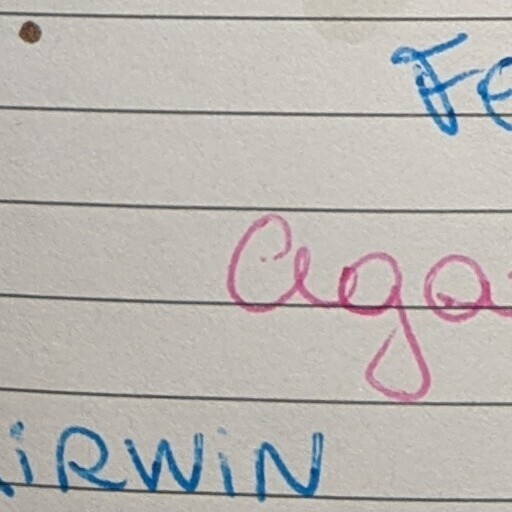 Fe
aga
iRWiN